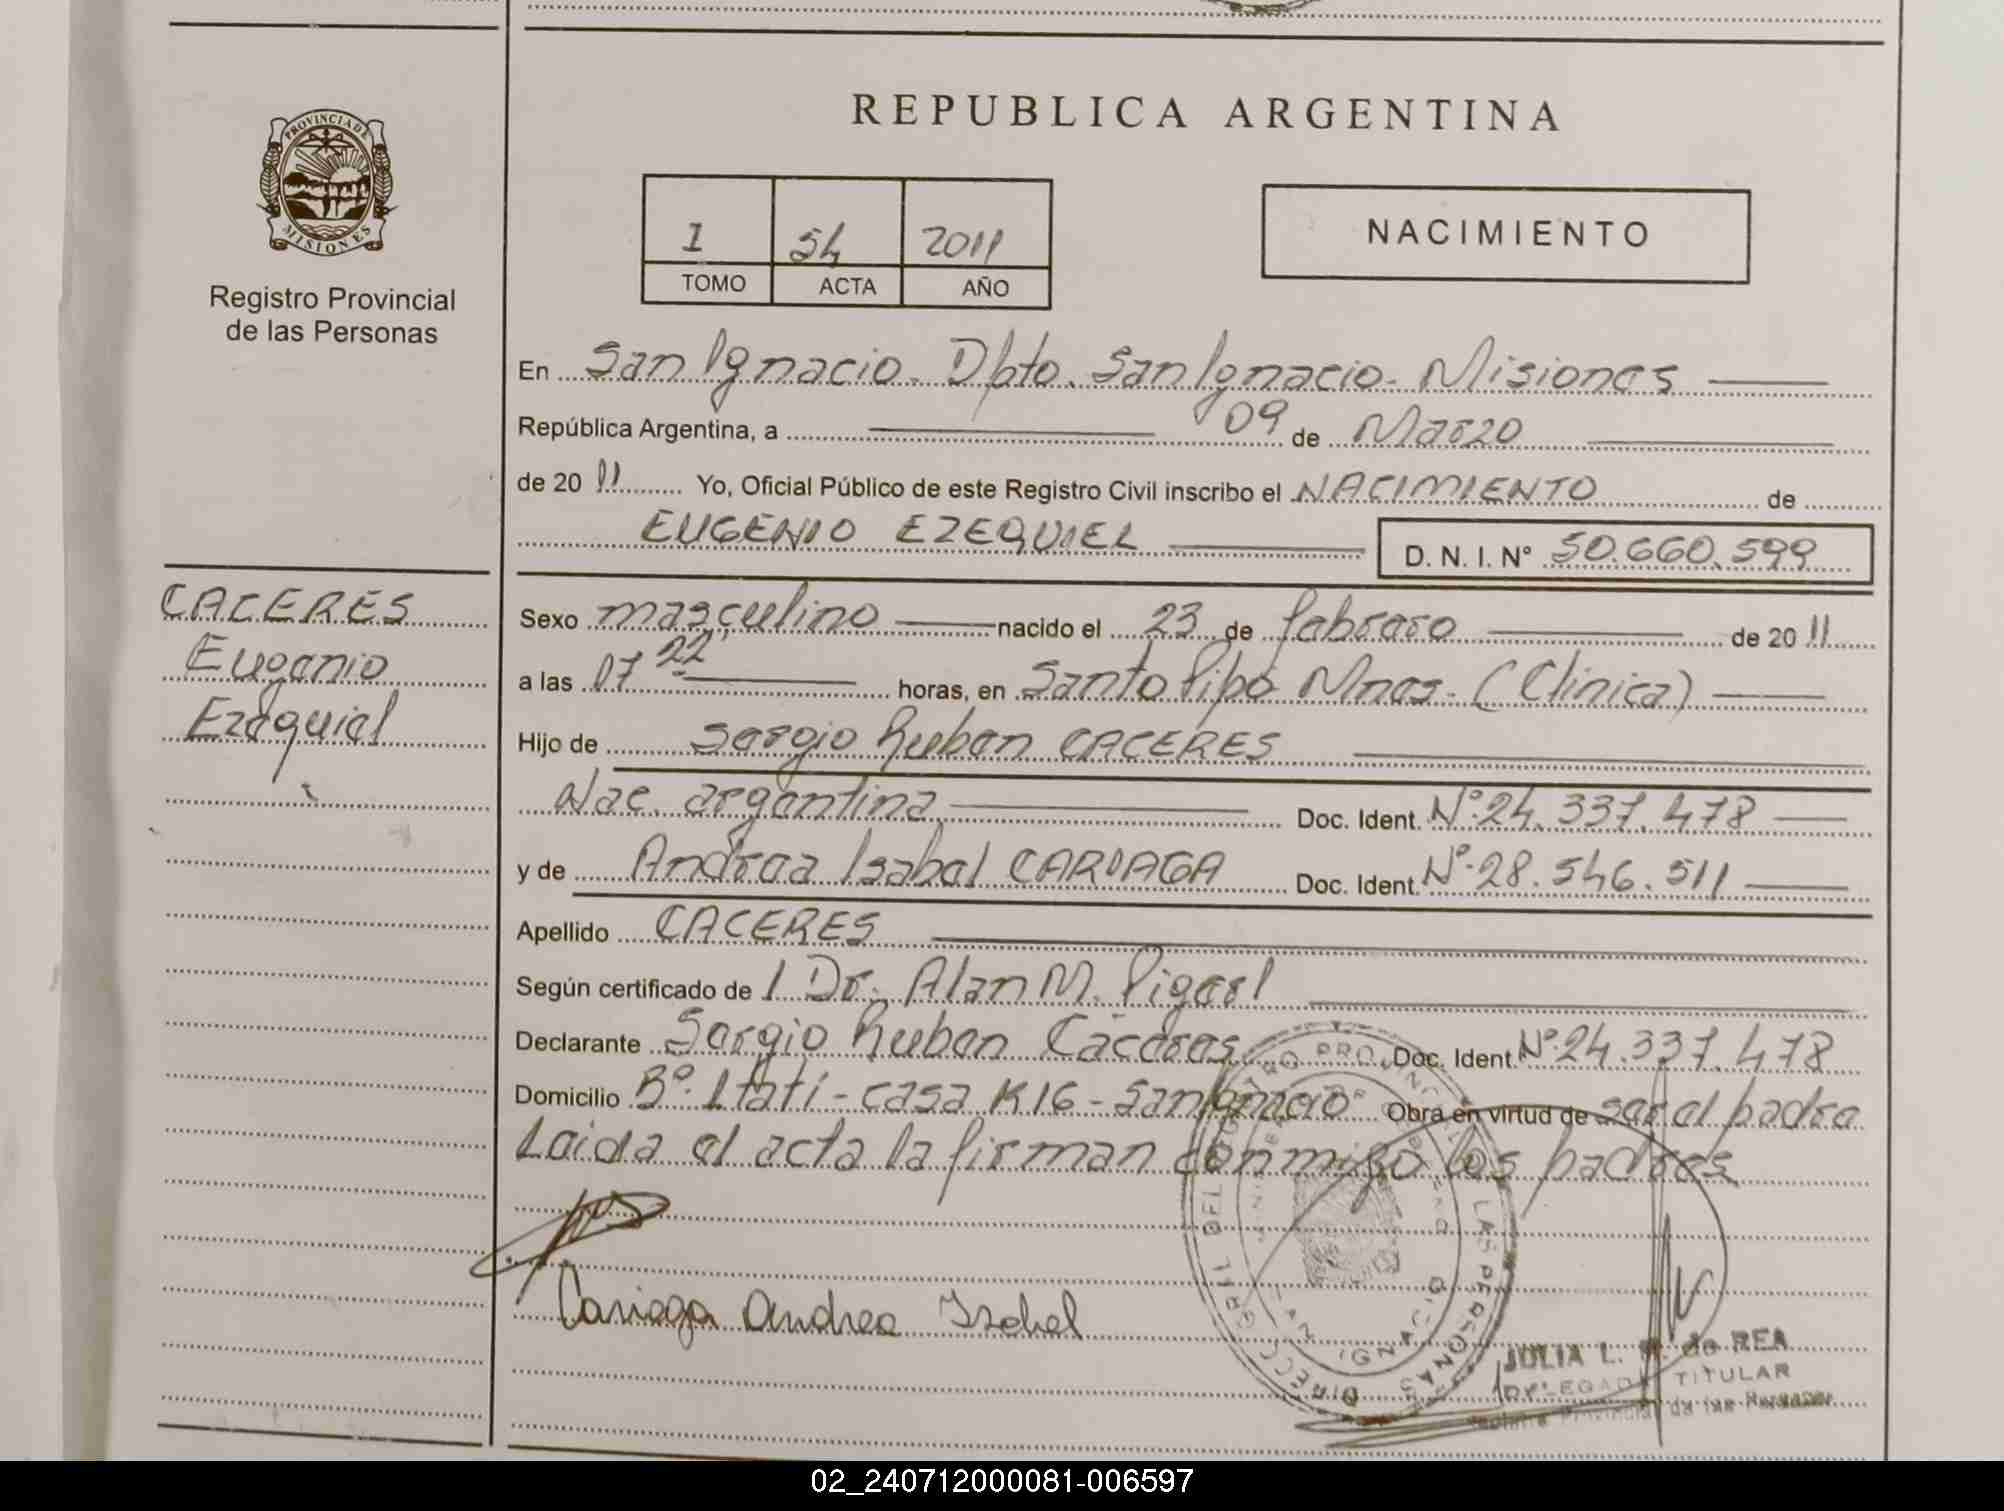 REPUBLICA ARGENTINA
PROVINCIA DE
MISIONES
Registro Provincial
de las Personas
1 54 2011
TOMO ACTA AÑO
NACIMIENTO
En San Ignacio. Dpto. San Ignacio. Misiones
República Argentina, a 09 de Marzo
de 2011 Yo, Oficial Público de este Registro Civil inscribo el NACIMIENTO de
EUGENIO EZEQUIEL D. N. I. N° 50.660.599
CACERES
Eugenio
Ezequiel
Sexo masculino nacido el 23 de febrero de 2011
a las 07 22 horas, en Santo Pipó Mnes. (Clinica)
Hijo de Sergio Ruben CACERES
Nac. argentina Doc. Ident. N° 24.337.478
y de Andrea Isabel CARIAGA Doc. Ident. N° 28.546.511
Apellido CACERES
Según certificado de 1 Dr. Alan M.
Declarante Sergio Ruben Cáceres Doc. Ident. N° 24.337.478
Domicilio B° Itatí - casa K16 - San Ignacio Obra en virtud de ser el padre
Leida el acta la firman conmigo los padres
Cariaga Andrea Isabel
JULIA L. de REA
DELEGADA TITULAR
Provincial de las Personas
02_240712000081-006597